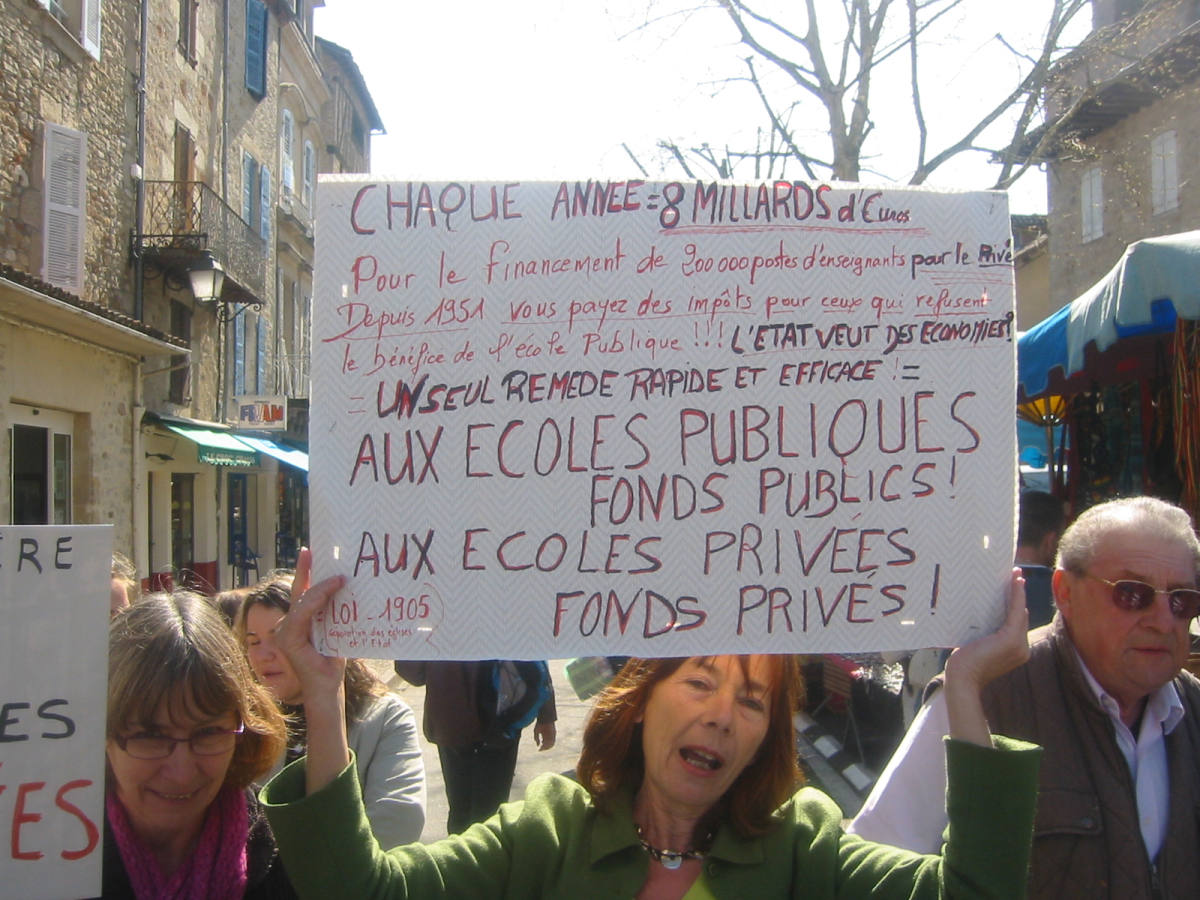 CHAQUE ANNEE = 8 MILLARDS d'Euros
Pour le financement de 200 000 postes d'enseignants pour le Privé
Depuis 1951 vous payez des impôts pour ceux qui refusent
le bénéfice de l'école Publique !!! L'ETAT VEUT DES ECONOMIES?
= UN SEUL REMEDE RAPIDE ET EFFICACE ! =
AUX ECOLES PUBLIQUES
FONDS PUBLICS !
AUX ECOLES PRIVÉES
FONDS PRIVÉS !
LOI - 1905
séparation des églises
et l'Etat
ERE
ES
ÉES